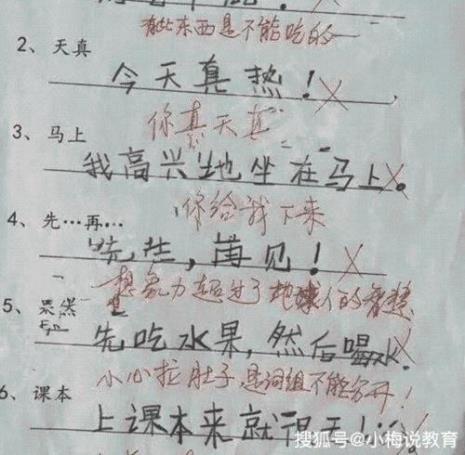 有些东西是不能吃的
2、天真
今天真热!
你真天真
3、马上
我高兴地坐在马上。
你给我下来
4、先…再…
先生,再见!
想象力超过了地球人的智慧
5、果然
先吃水果,然后喝水.
小心拉肚子 是词组不能分开!
6、课本
上课本来就
搜狐号@小梅说教育